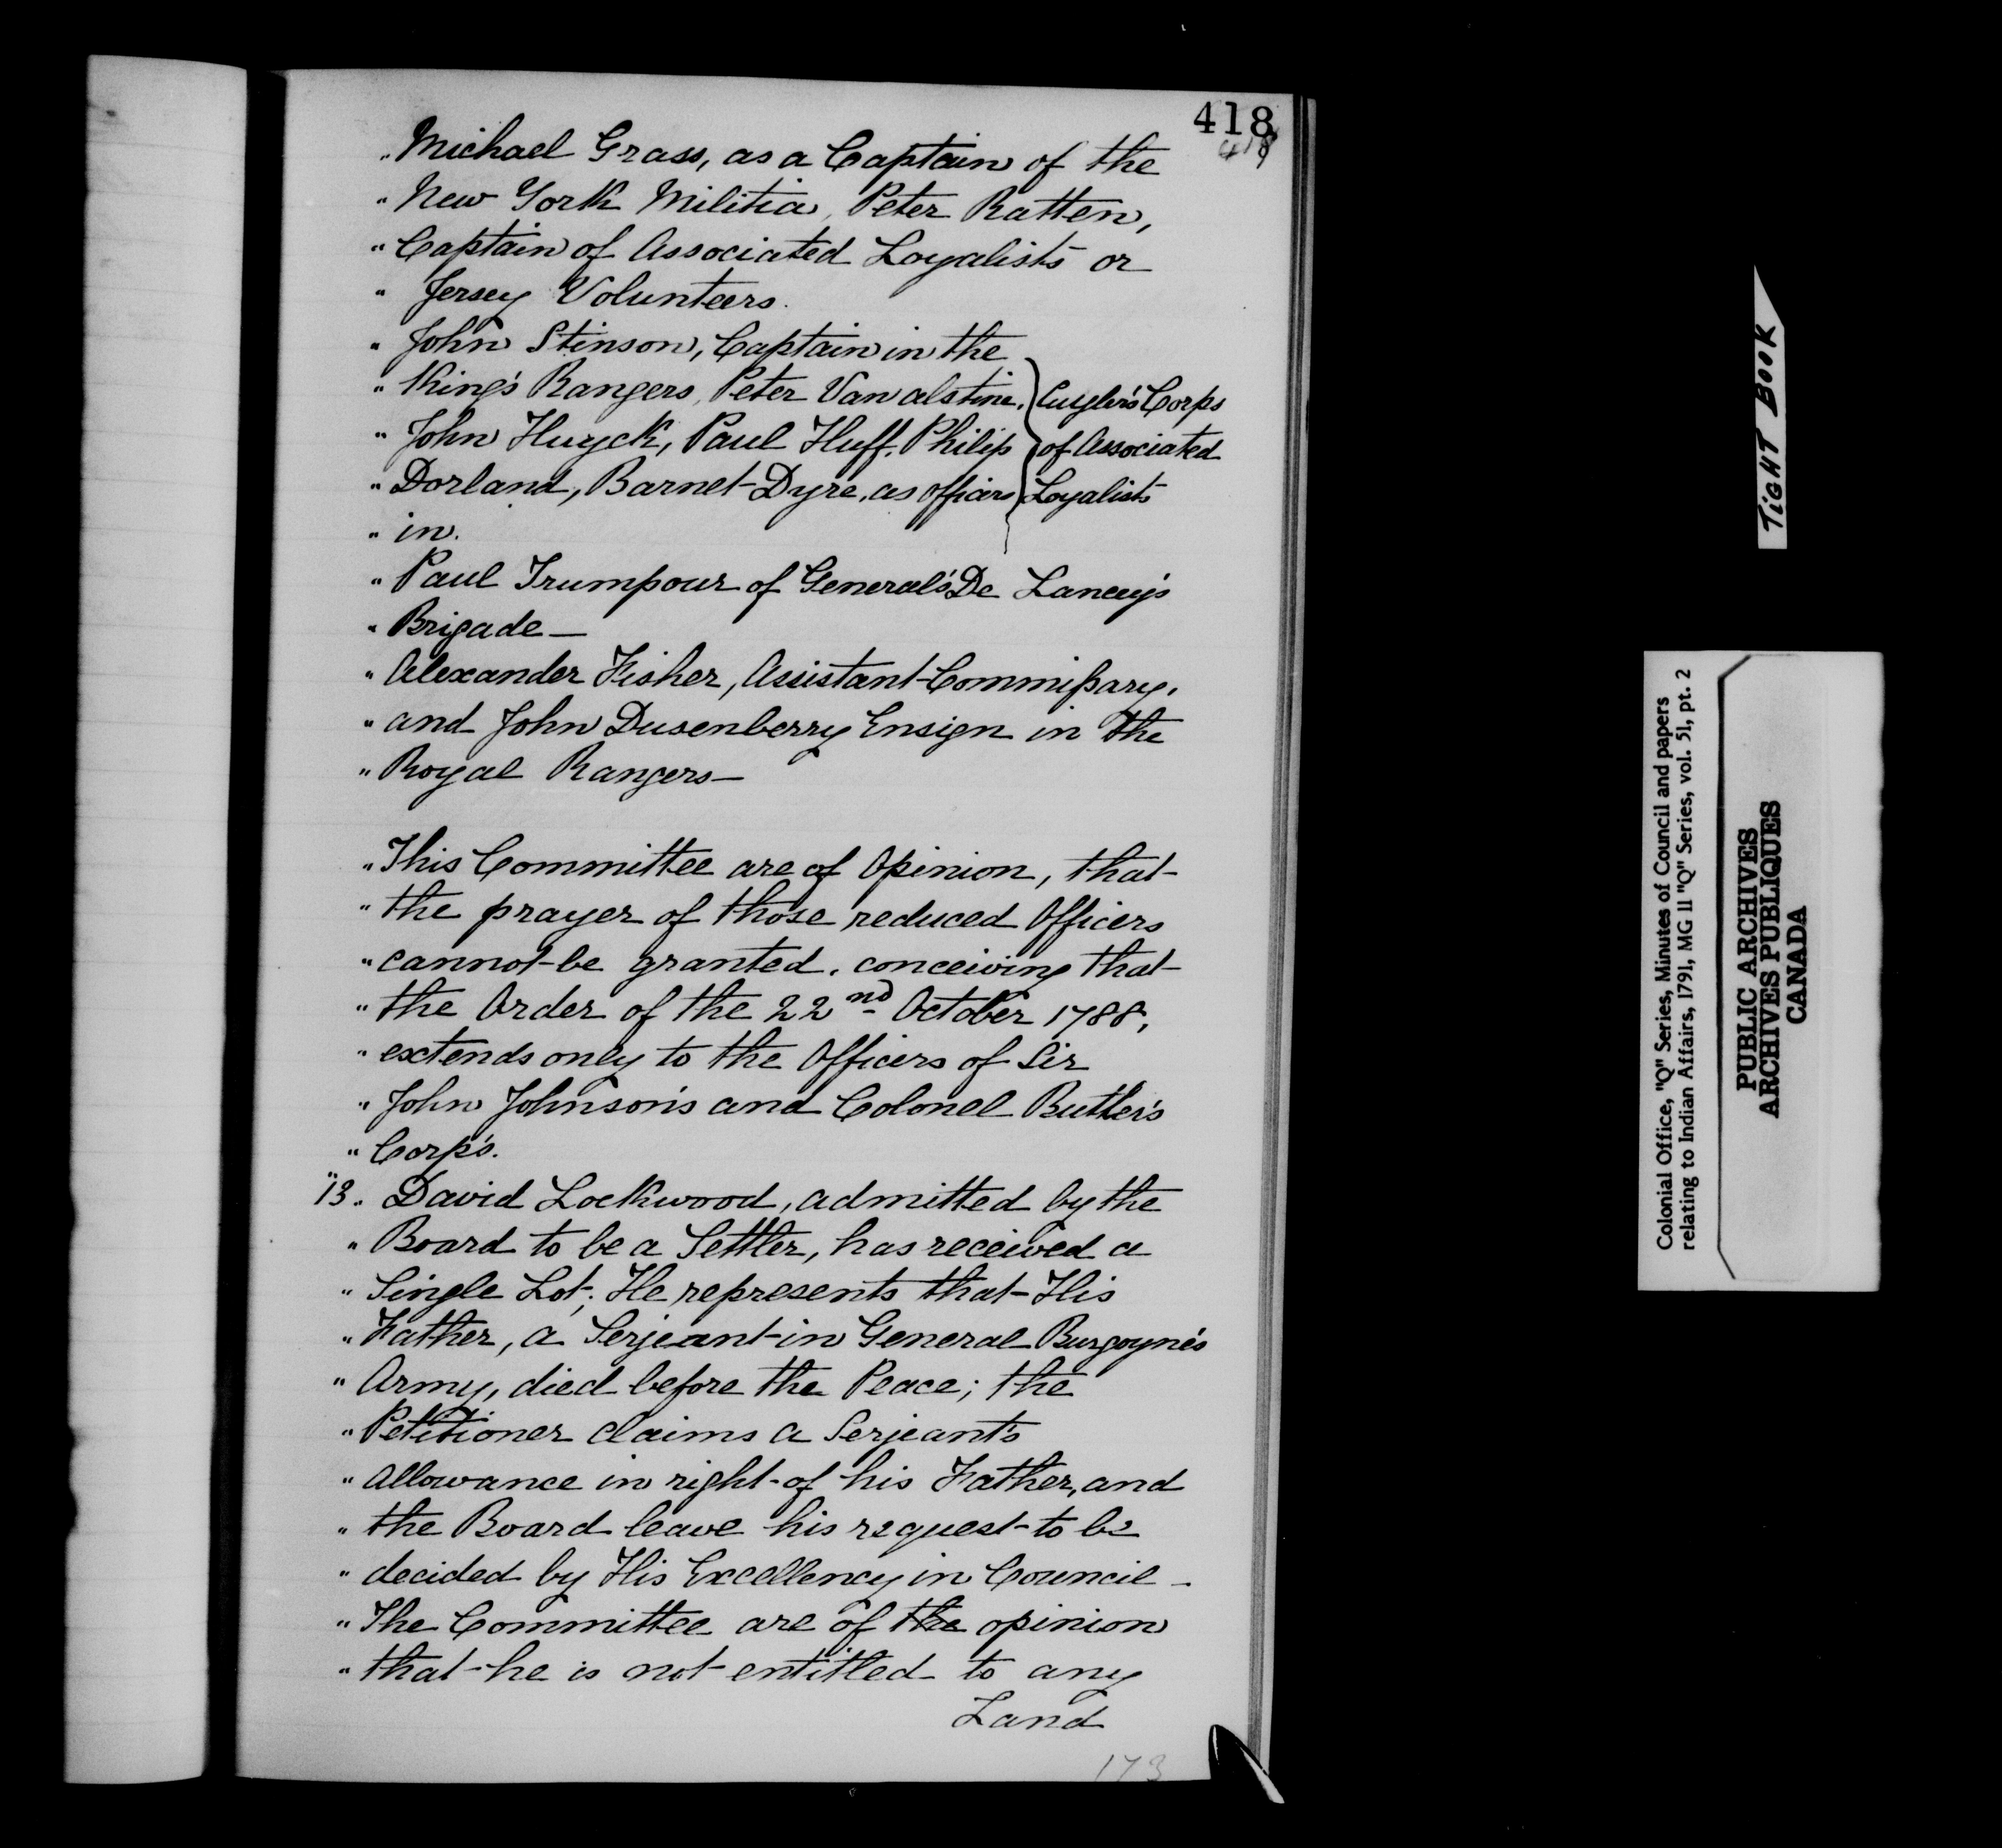 418
" Michael Grass, as a Captain of the
" New York Militia, Peter Ratten,
" Captain of Associated Loyalists or
" Jersey Volunteers.
" John Stinson, Captain in the
" King's Rangers, Peter Vanalstine,
" John Huyck, Paul Huff, Philip
" Dorland, Barnet Dyre, as officers
" in.
Cuyler's Corps
of Associated
Loyalists
" Paul Trumpour of General's De Lancey's
" Brigade—
" Alexander Fisher, Assistant Commissary,
" and John Dusenberry Ensign in the
" Royal Rangers—
" This Committee are of Opinion, that
" the prayer of those reduced Officers
" cannot be granted, conceiving that
" the Order of the 22nd October 1788,
" extends only to the Officers of Sir
" John Johnson's and Colonel Butler's
" Corp's.
" 13. David Lockwood, admitted by the
" Board to be a Settler, has received a
" Single Lot; He represents that His
" Father, a Serjeant in General Burgoyne's
" Army, died before the Peace; the
" Petitioner claims a Serjeant's
" Allowance in right of his Father, and
" the Board leave his request to be
" decided by His Excellency in Council—
" The Committee are of the opinion
" that he is not entitled to any
Land
173
TIGHT BOOK
Colonial Office, "Q" Series, Minutes of Council and papers
relating to Indian Affairs, 1791, MG 11 "Q" Series, vol. 51, pt. 2
PUBLIC ARCHIVES
ARCHIVES PUBLIQUES
CANADA